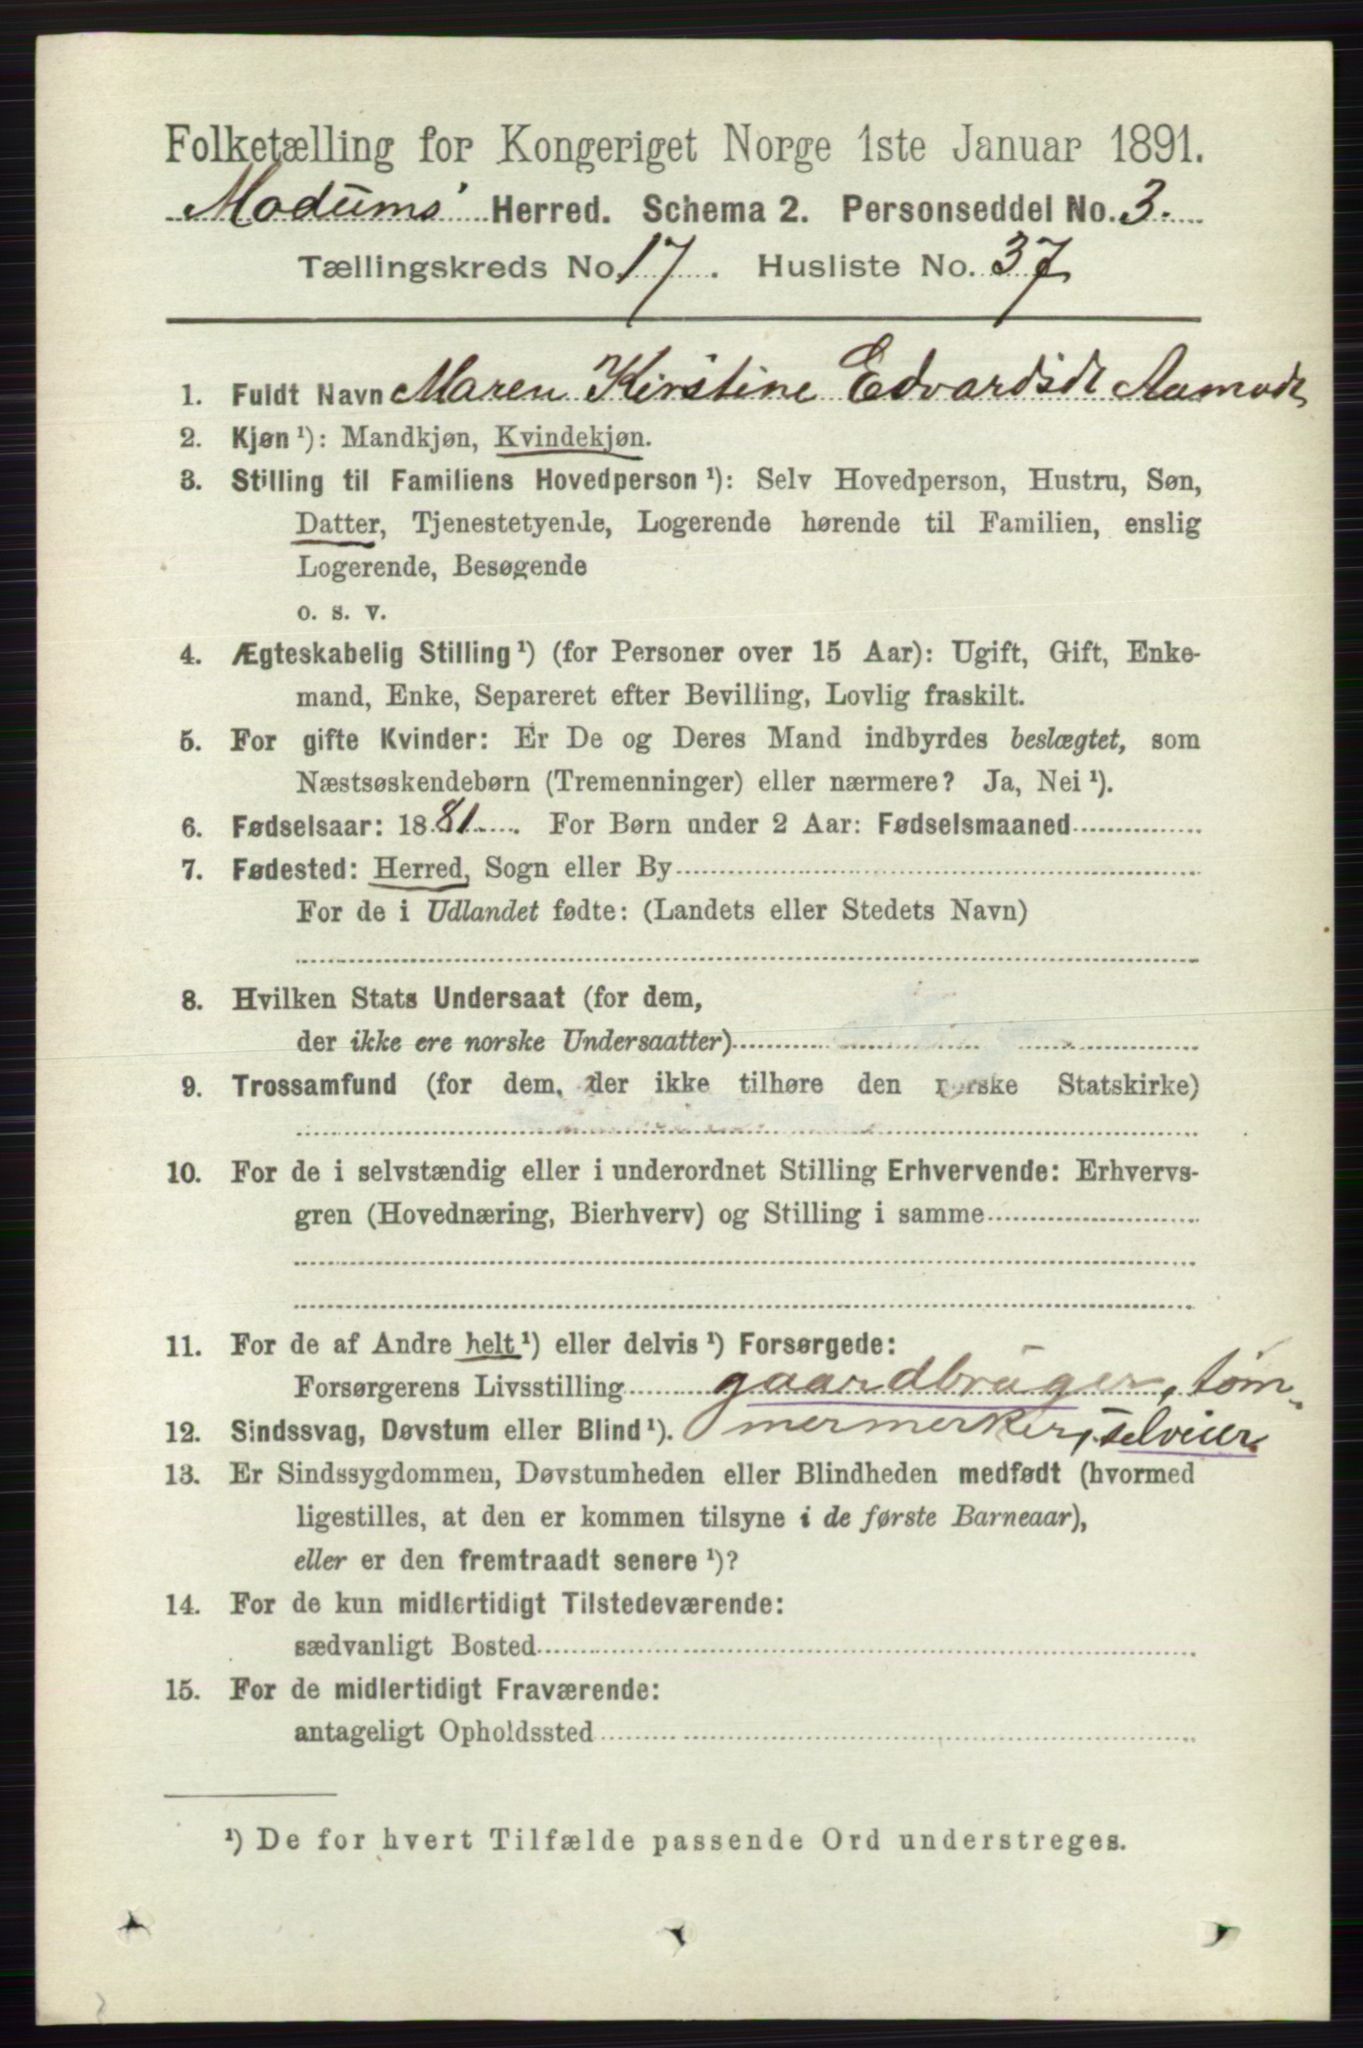 Folketælling for Kongeriget Norge 1ste Januar 1891.
Modums Herred. Schema 2. Personseddel No. 3.
Tællingskreds No. 17. Husliste No. 37
1. Fuldt Navn Maren Kirstine Edvardsdt Aamodt
2. Kjøn ¹): Mandkjøn, Kvindekjøn.
3. Stilling til Familiens Hovedperson ¹): Selv Hovedperson, Hustru, Søn,
Datter, Tjenestetyende, Logerende hørende til Familien, enslig
Logerende, Besøgende
o. s. v.
4. Ægteskabelig Stilling ¹) (for Personer over 15 Aar): Ugift, Gift, Enke-
mand, Enke, Separeret efter Bevilling, Lovlig fraskilt.
5. For gifte Kvinder: Er De og Deres Mand indbyrdes beslægtet, som
Næstsøskendebørn (Tremenninger) eller nærmere? Ja, Nei ¹).
6. Fødselsaar: 1881. For Børn under 2 Aar: Fødselsmaaned
7. Fødested: Herred, Sogn eller By
For de i Udlandet fødte: (Landets eller Stedets Navn)
8. Hvilken Stats Undersaat (for dem,
der ikke ere norske Undersaatter)
9. Trossamfund (for dem, der ikke tilhøre den norske Statskirke)
10. For de i selvstændig eller i underordnet Stilling Erhvervende: Erhvervs-
gren (Hovednæring, Bierhverv) og Stilling i samme
11. For de af Andre helt ¹) eller delvis ¹) Forsørgede:
Forsørgerens Livsstilling gaardbruger, tøm-
12. Sindssvag, Døvstum eller Blind ¹). mermerker, selveier.
13. Er Sindssygdommen, Døvstumheden eller Blindheden medfødt (hvormed
ligestilles, at den er kommen tilsyne i de første Barneaar),
eller er den fremtraadt senere ¹)?
14. For de kun midlertidigt Tilstedeværende:
sædvanligt Bosted
15. For de midlertidigt Fraværende:
antageligt Opholdssted
¹) De for hvert Tilfælde passende Ord understreges.